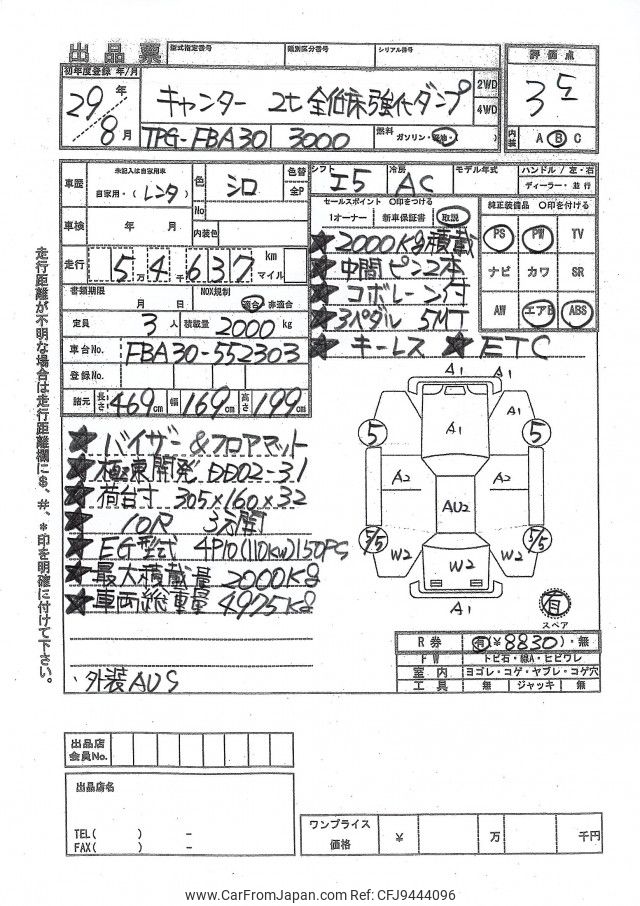 出品票 型式指定番号 類別区分番号 シリアル番号
初年度登録 年/月
29年 8月
キャンター 2t 全低床強化ダンプ
2WD
4WD
TPG-FBA30 3000
燃料 ガソリン・軽油・( )
評価点
3.5
内装 A B C
車歴 未記入は自家用車
自家用・(レンタ)
色 シロ
No
色替
全P
車検 年 月
内装色
走行 5万4千637 km
マイル
書類期限 月 日
NOX規制 適合・非適合
定員 3人 積載量 2000 kg
車台No. FBA30-552303
登録No.
諸元 長さ 469cm 幅 169cm 高さ 199cm
シフト I5
冷房 AC
モデル年式
ハンドル/左・右
ディーラー・並行
セールスポイント ○印をつける
1オーナー 新車保証書 取説
★2000Kg積載
★中間ピン2本
★コボレーン付
★3ペダル 5MT
★キーレス ★ETC
純正装備品 ○印を付ける
PS PW TV
ナビ カワ SR
AW エアB ABS
走行距離が不明な場合は走行距離欄に$、#、*印を明確に付けて下さい。
★バイザー&フロアマット
★極東開発 DD02-31
★荷台寸 305×160×32
★10尺 3方開
★EG型式 4P10(110kw)150PS
★最大積載量 2000Kg
★車両総重量 4975Kg
・外装AUS
A1
A1
A1
A1
5
5
A2
A2
AU2
5/5
5/5
W2
W2
W2
A1
有
スペア
R券 有(¥8830)・無
FW トビ石・線A・ヒビワレ
室内 ヨゴレ・コゲ・ヤブレ・コゲ穴
工具 無 ジャッキ 無
出品店
会員No.
出品店名
TEL( ) -
FAX( ) -
ワンプライス
価格
¥ 万 千円
www.CarFromJapan.com Ref: CFJ9444096